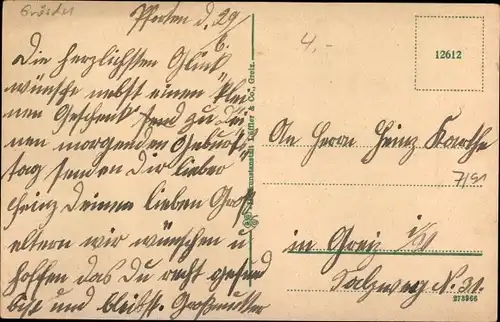 Pforten d. 29/6.
Die herzlichsten Glück„
wünsche nebst einen klei„
nen Geschenk send zu dei„
nen morgenden Geburts„
tag senden dir lieber
Heinz deinen lieben Groß„
eltern wir wünschen u
hoffen das du recht gesund
bist und bleibst. Großmutter
&amp; Co., Greiz.
4.-
12612
An Herrn Heinz
in Greiz i/V
Salzweg N. 21.
273966